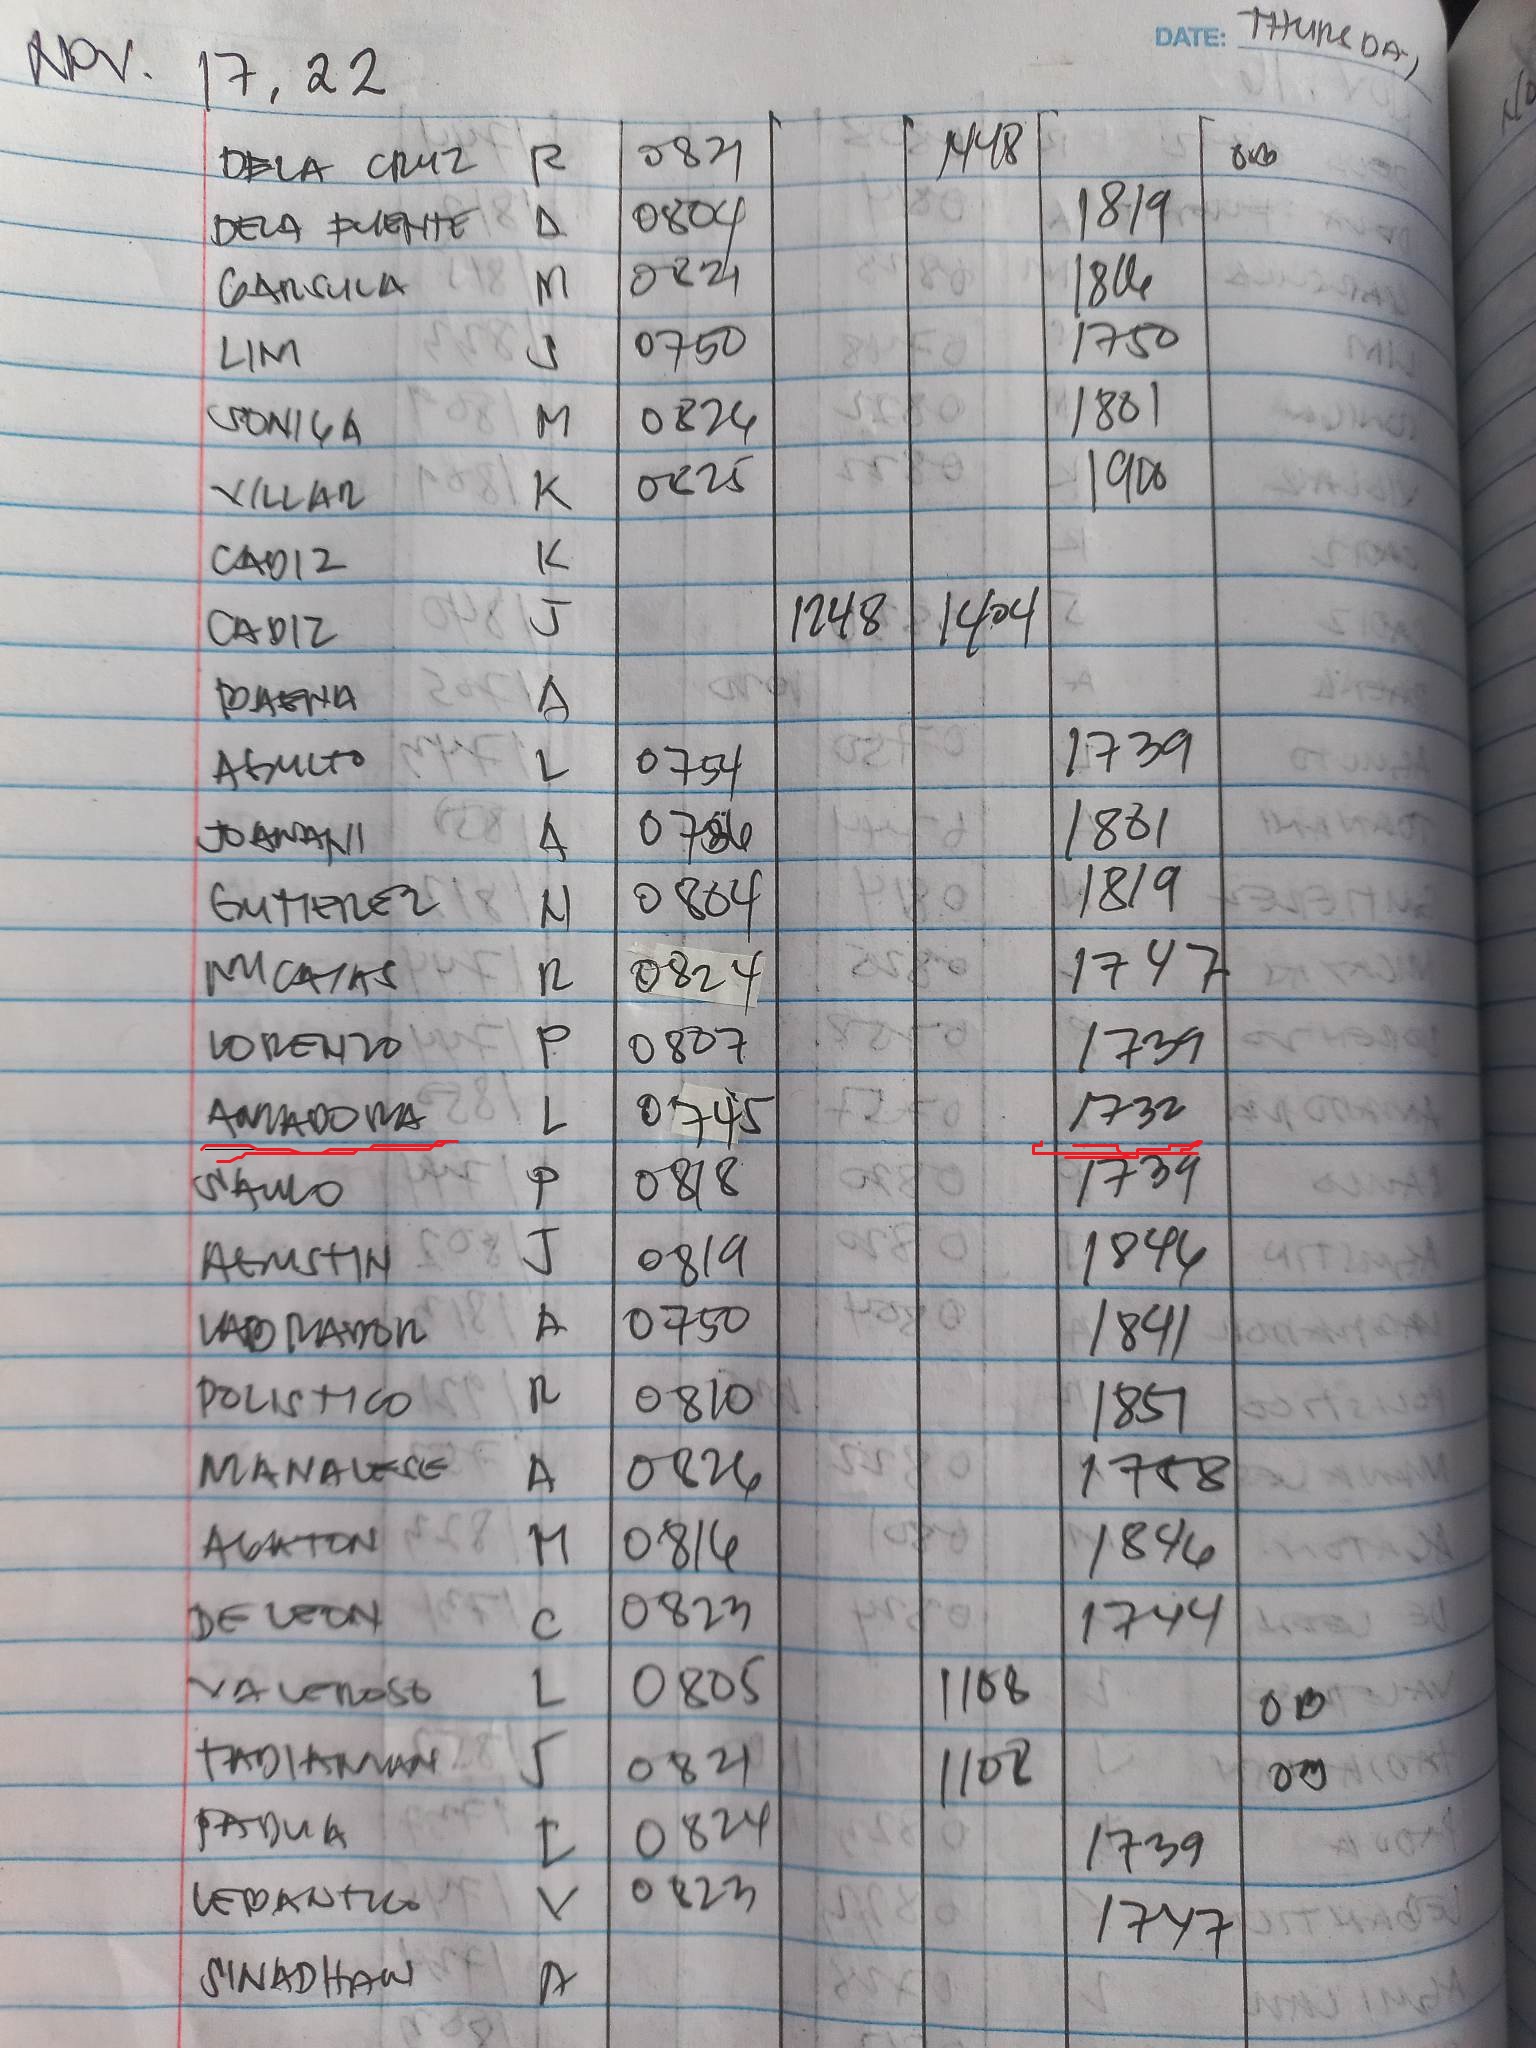 NOV. 17, 22
DATE: THURSDAY
DELA CRUZ R 0821 1448
DELA PUENTE A 0804 1819
GARSULA M 0821 1806
LIM J 0750 1750
SONIGA M 0826 1801
VILLAR K 0825 1900
CADIZ K
CADIZ J 1248 1404
BAENA A
AGULTO L 0754 1739
JOANANI A 1801
GUTIEREZ N 0804 1819
MICAYAS R 0824 1747
LORENZO P 0807 1739
AMADORA L 0745 1732
SAULO P 0818 1739
AGUSTIN J 0819 1846
LABRADOR A 0750 1841
POLISTICO R 0810 1851
MANALESE A 0826 1758
AGATON M 0816 1846
DE LEON C 0823 1744
VALEROSO L 0805 1108 OB
TADIAMAN J 0821 1108 OB
PADUA L 0824 1739
LEBANTICO V 0823 1747
SINADHAN A